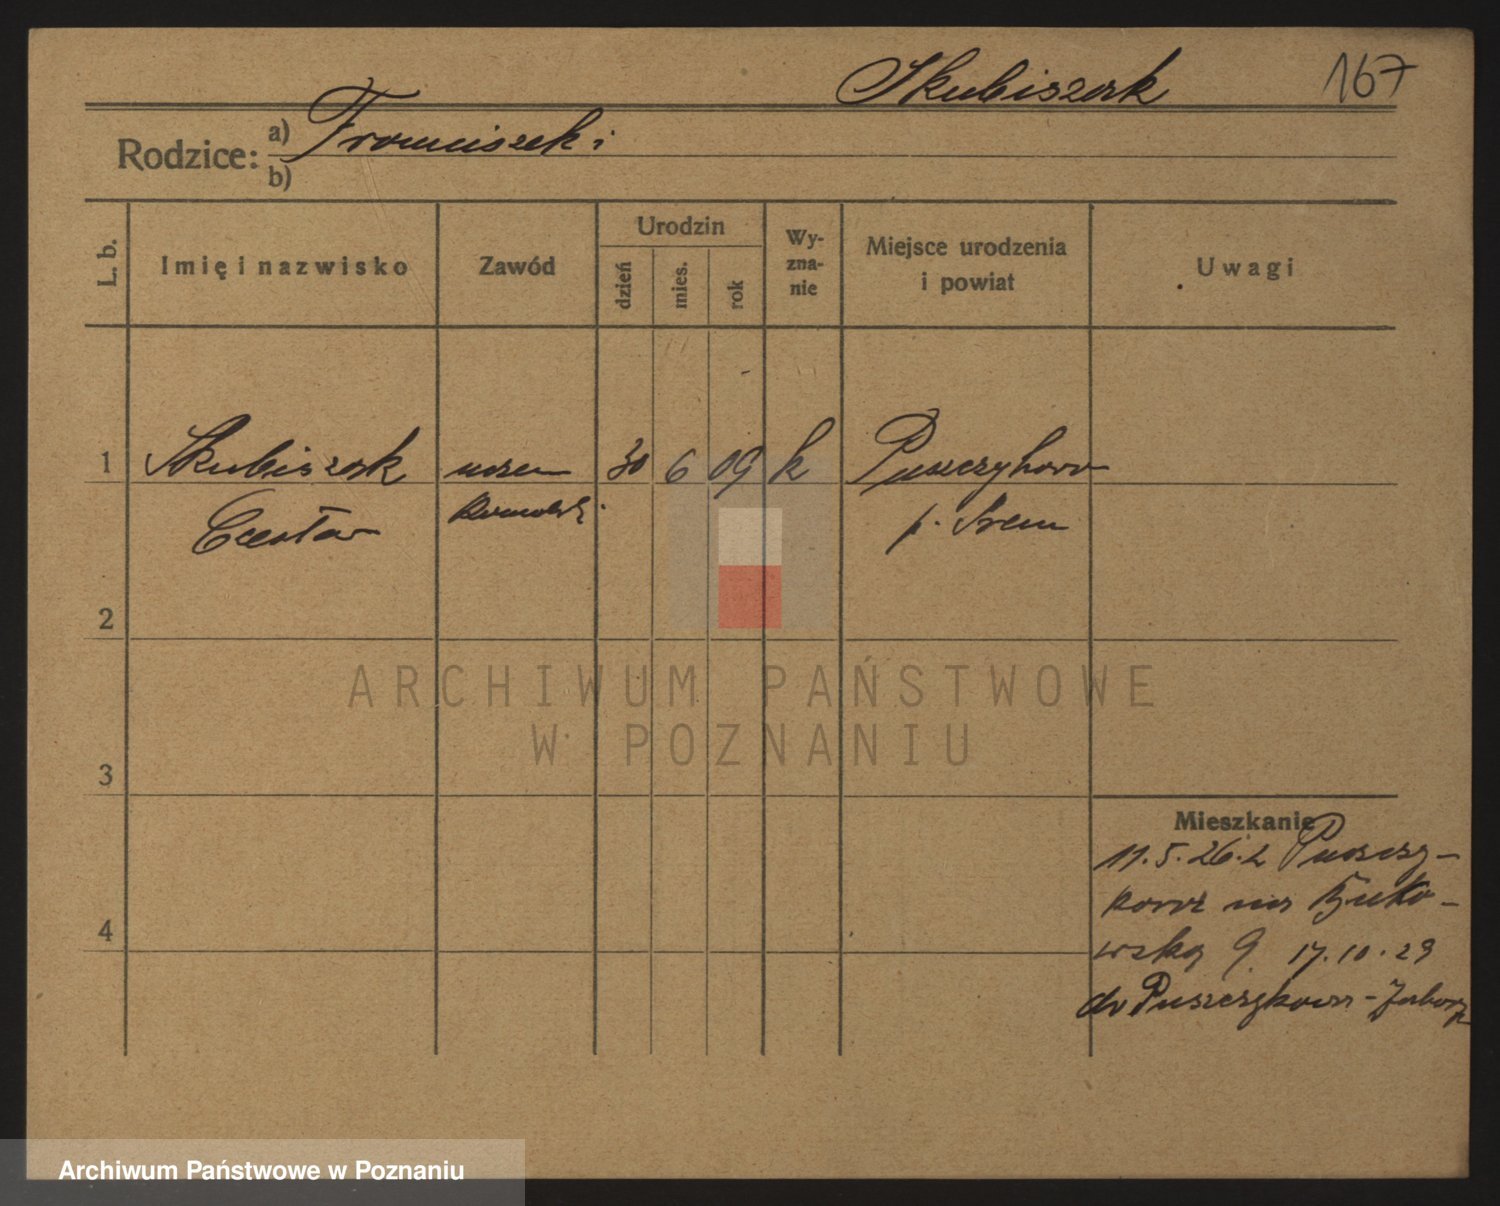 Skubiszak 167
Rodzice: a) Franciszek i
b)
L. b. Imię i nazwisko Zawód Urodzin dzień mies. rok Wy-
zna-
nie Miejsce urodzenia
i powiat Uwagi
1 Skubiszak uczeń 30 6 09 k Puszczykowo
Czesław p. Śrem
2
3
4
Mieszkanie
11.5.26. z Puszczy-
kowa na Buko-
wską 9. 17.10.29
do Puszczykowa -
ARCHIWUM PAŃSTWOWE
W POZNANIU
Archiwum Państwowe w Poznaniu